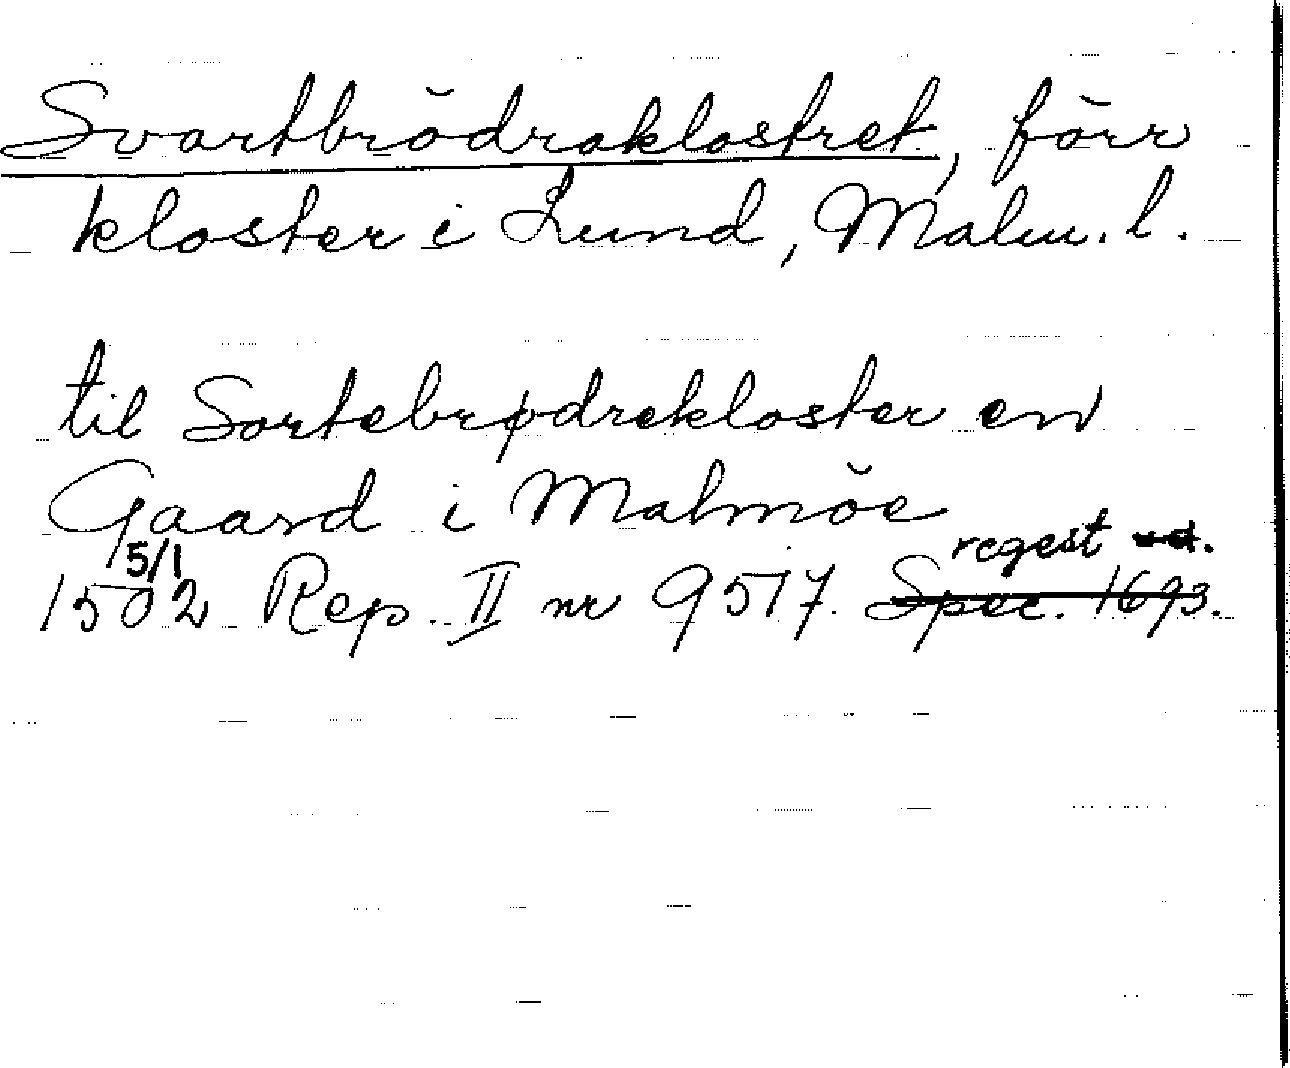 Svartbrödraklostret, förr
kloster i Lund, Malm. l.
til Sortebrødrekloster en
Gaard i Malmöe
5/1 regest
1502 Rep. II nr 9517. Spec. 1693.